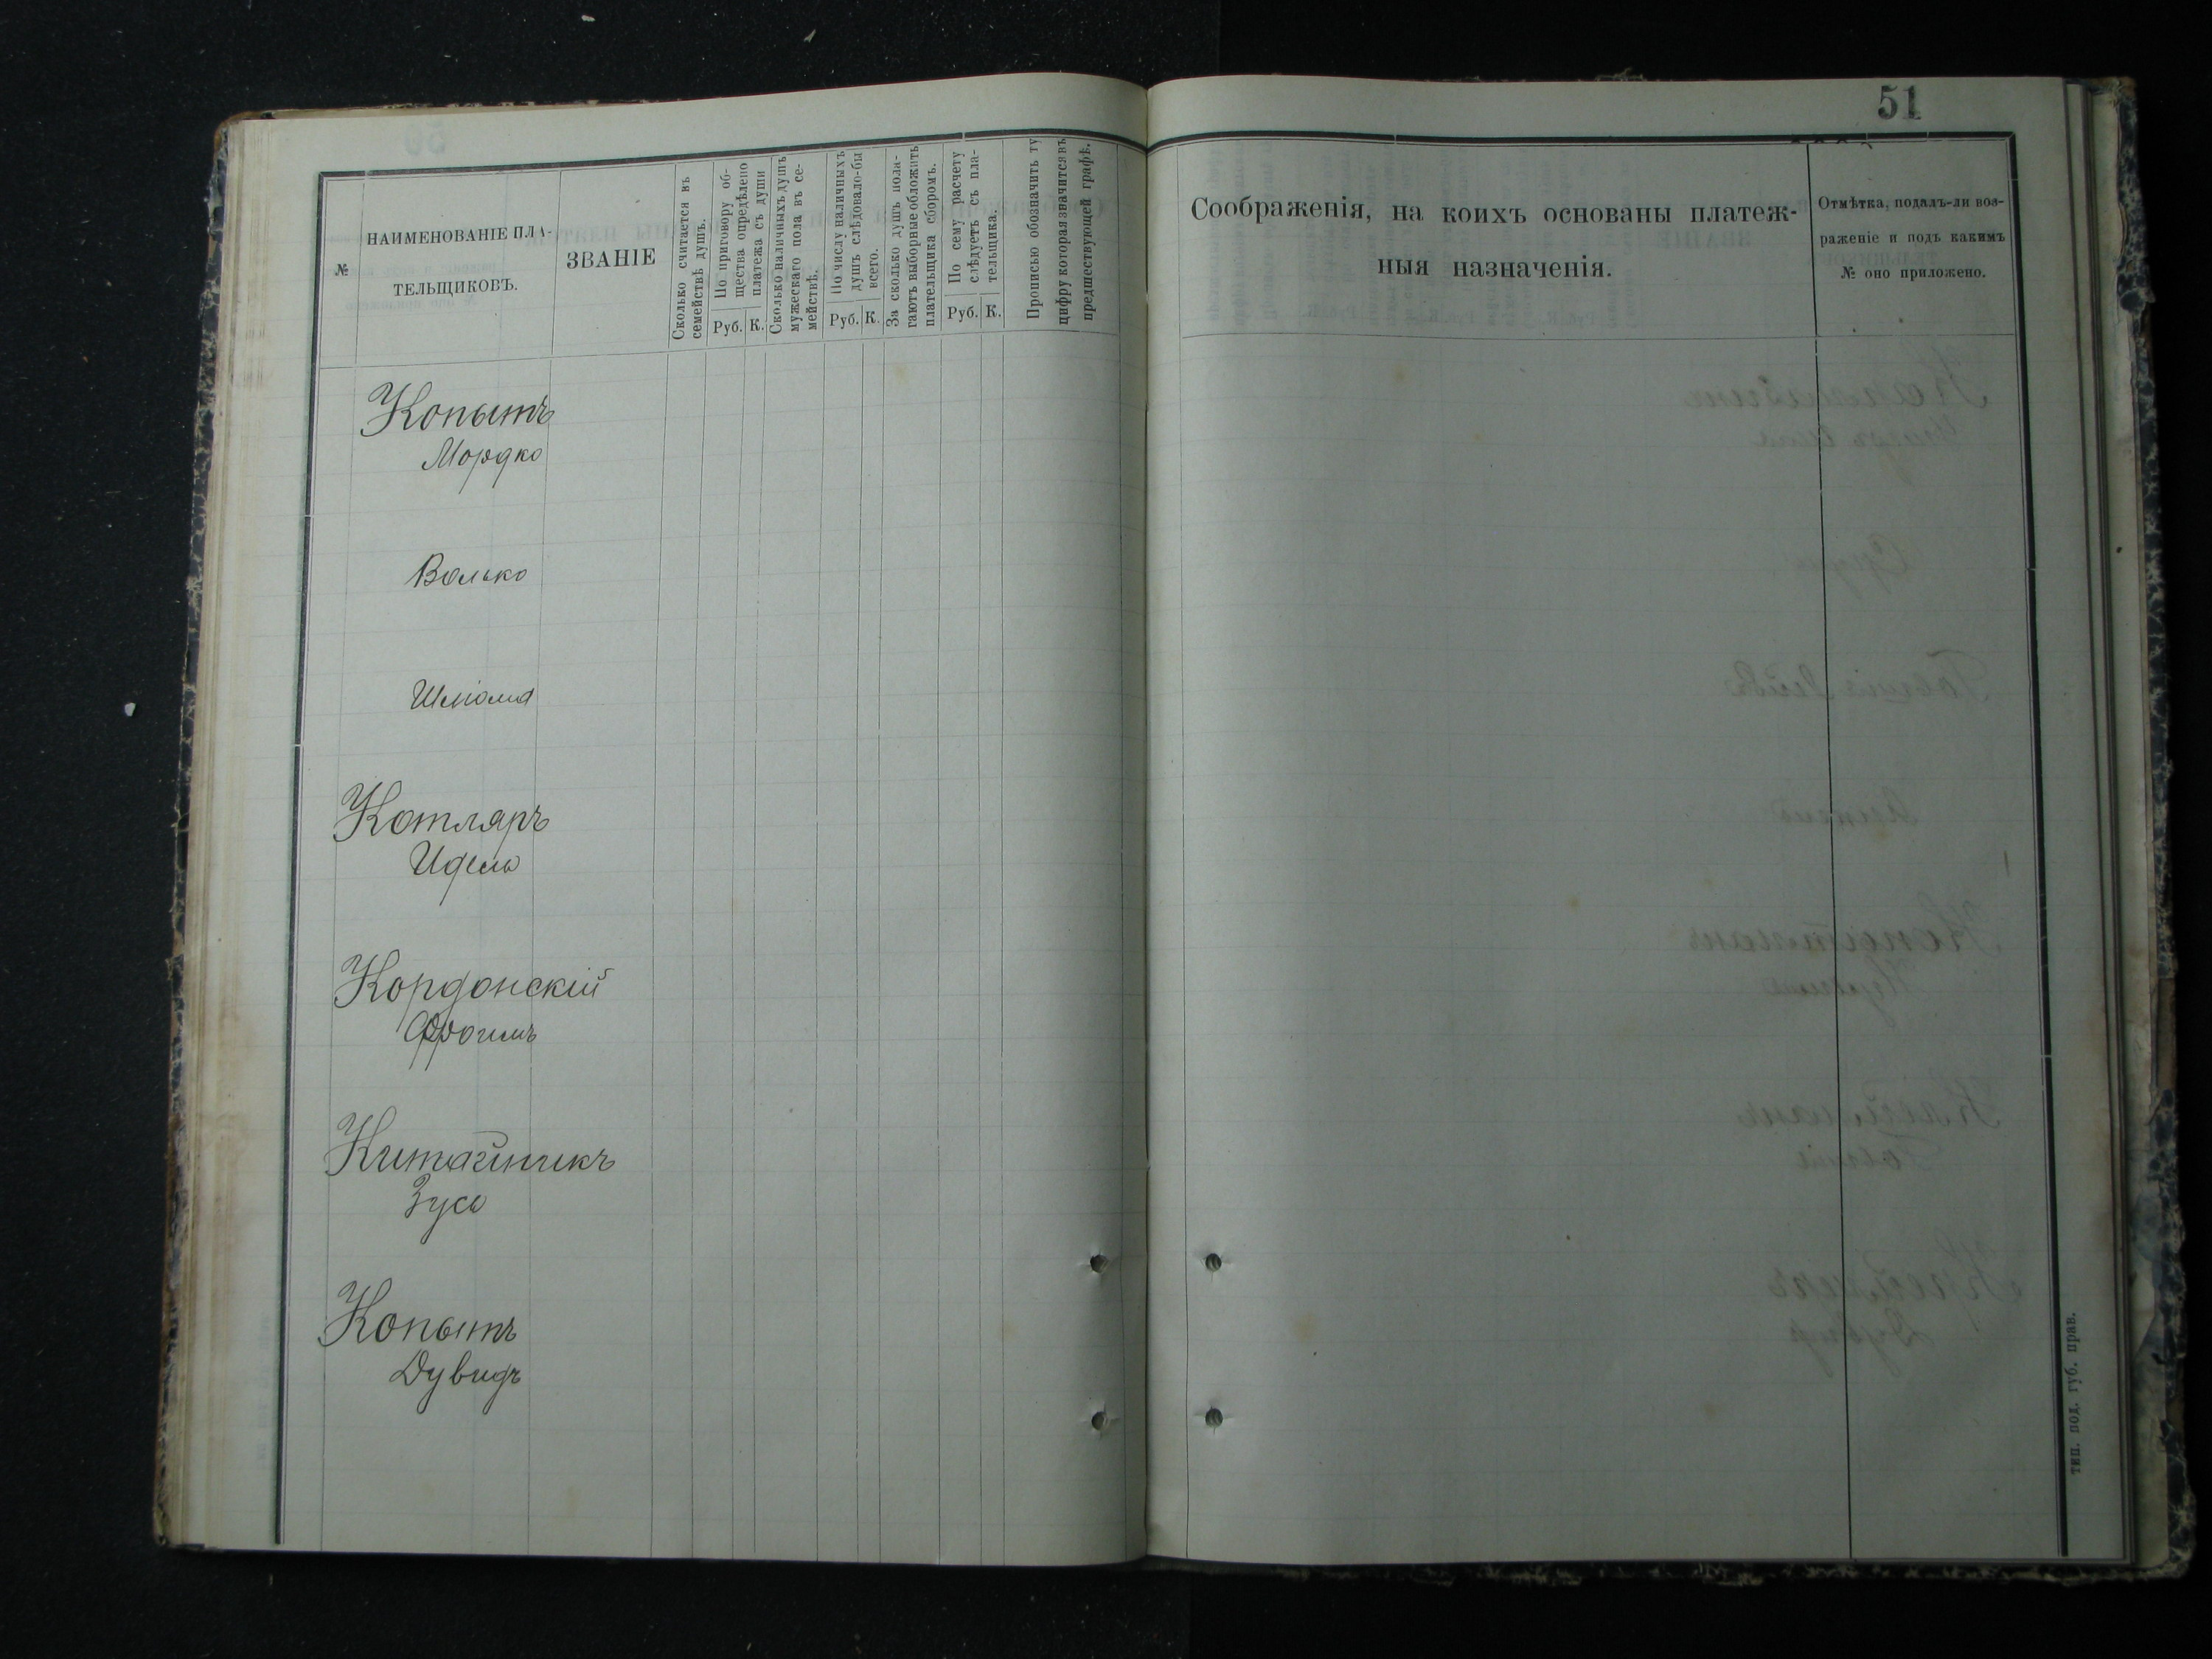 51
№
НАИМЕНОВАНІЕ ПЛА-
ТЕЛЬЩИКОВЪ.
ЗВАНІЕ
Сколько считается въ
семействѣ душъ.
По приговору об-
щества опредѣлено
платежа съ души
Руб. К.
Сколько наличныхъ душъ
мужескаго пола въ се-
мействѣ.
По числу наличныхъ
душъ слѣдовало-бы
всего.
Руб. К.
За сколько душъ пола-
гаютъ выборные обложить
плательщика сборомъ.
По сему расчету
слѣдуетъ съ пла-
тельщика.
Руб. К.
Прописью обозначить ту
цифру которая значится въ
предшествующей графѣ.
Соображенія, на коихъ основаны платеж-
ныя назначенія.
Отмѣтка, подалъ-ли воз-
раженіе и подъ какимъ
№ оно приложено.
Копытъ
Мордко
Волько
Шліома
Котляръ
Идель
Кордонскій
Фроимъ
Китайникъ
Зусь
Копытъ
Дувидъ
тип. под. губ. прав.